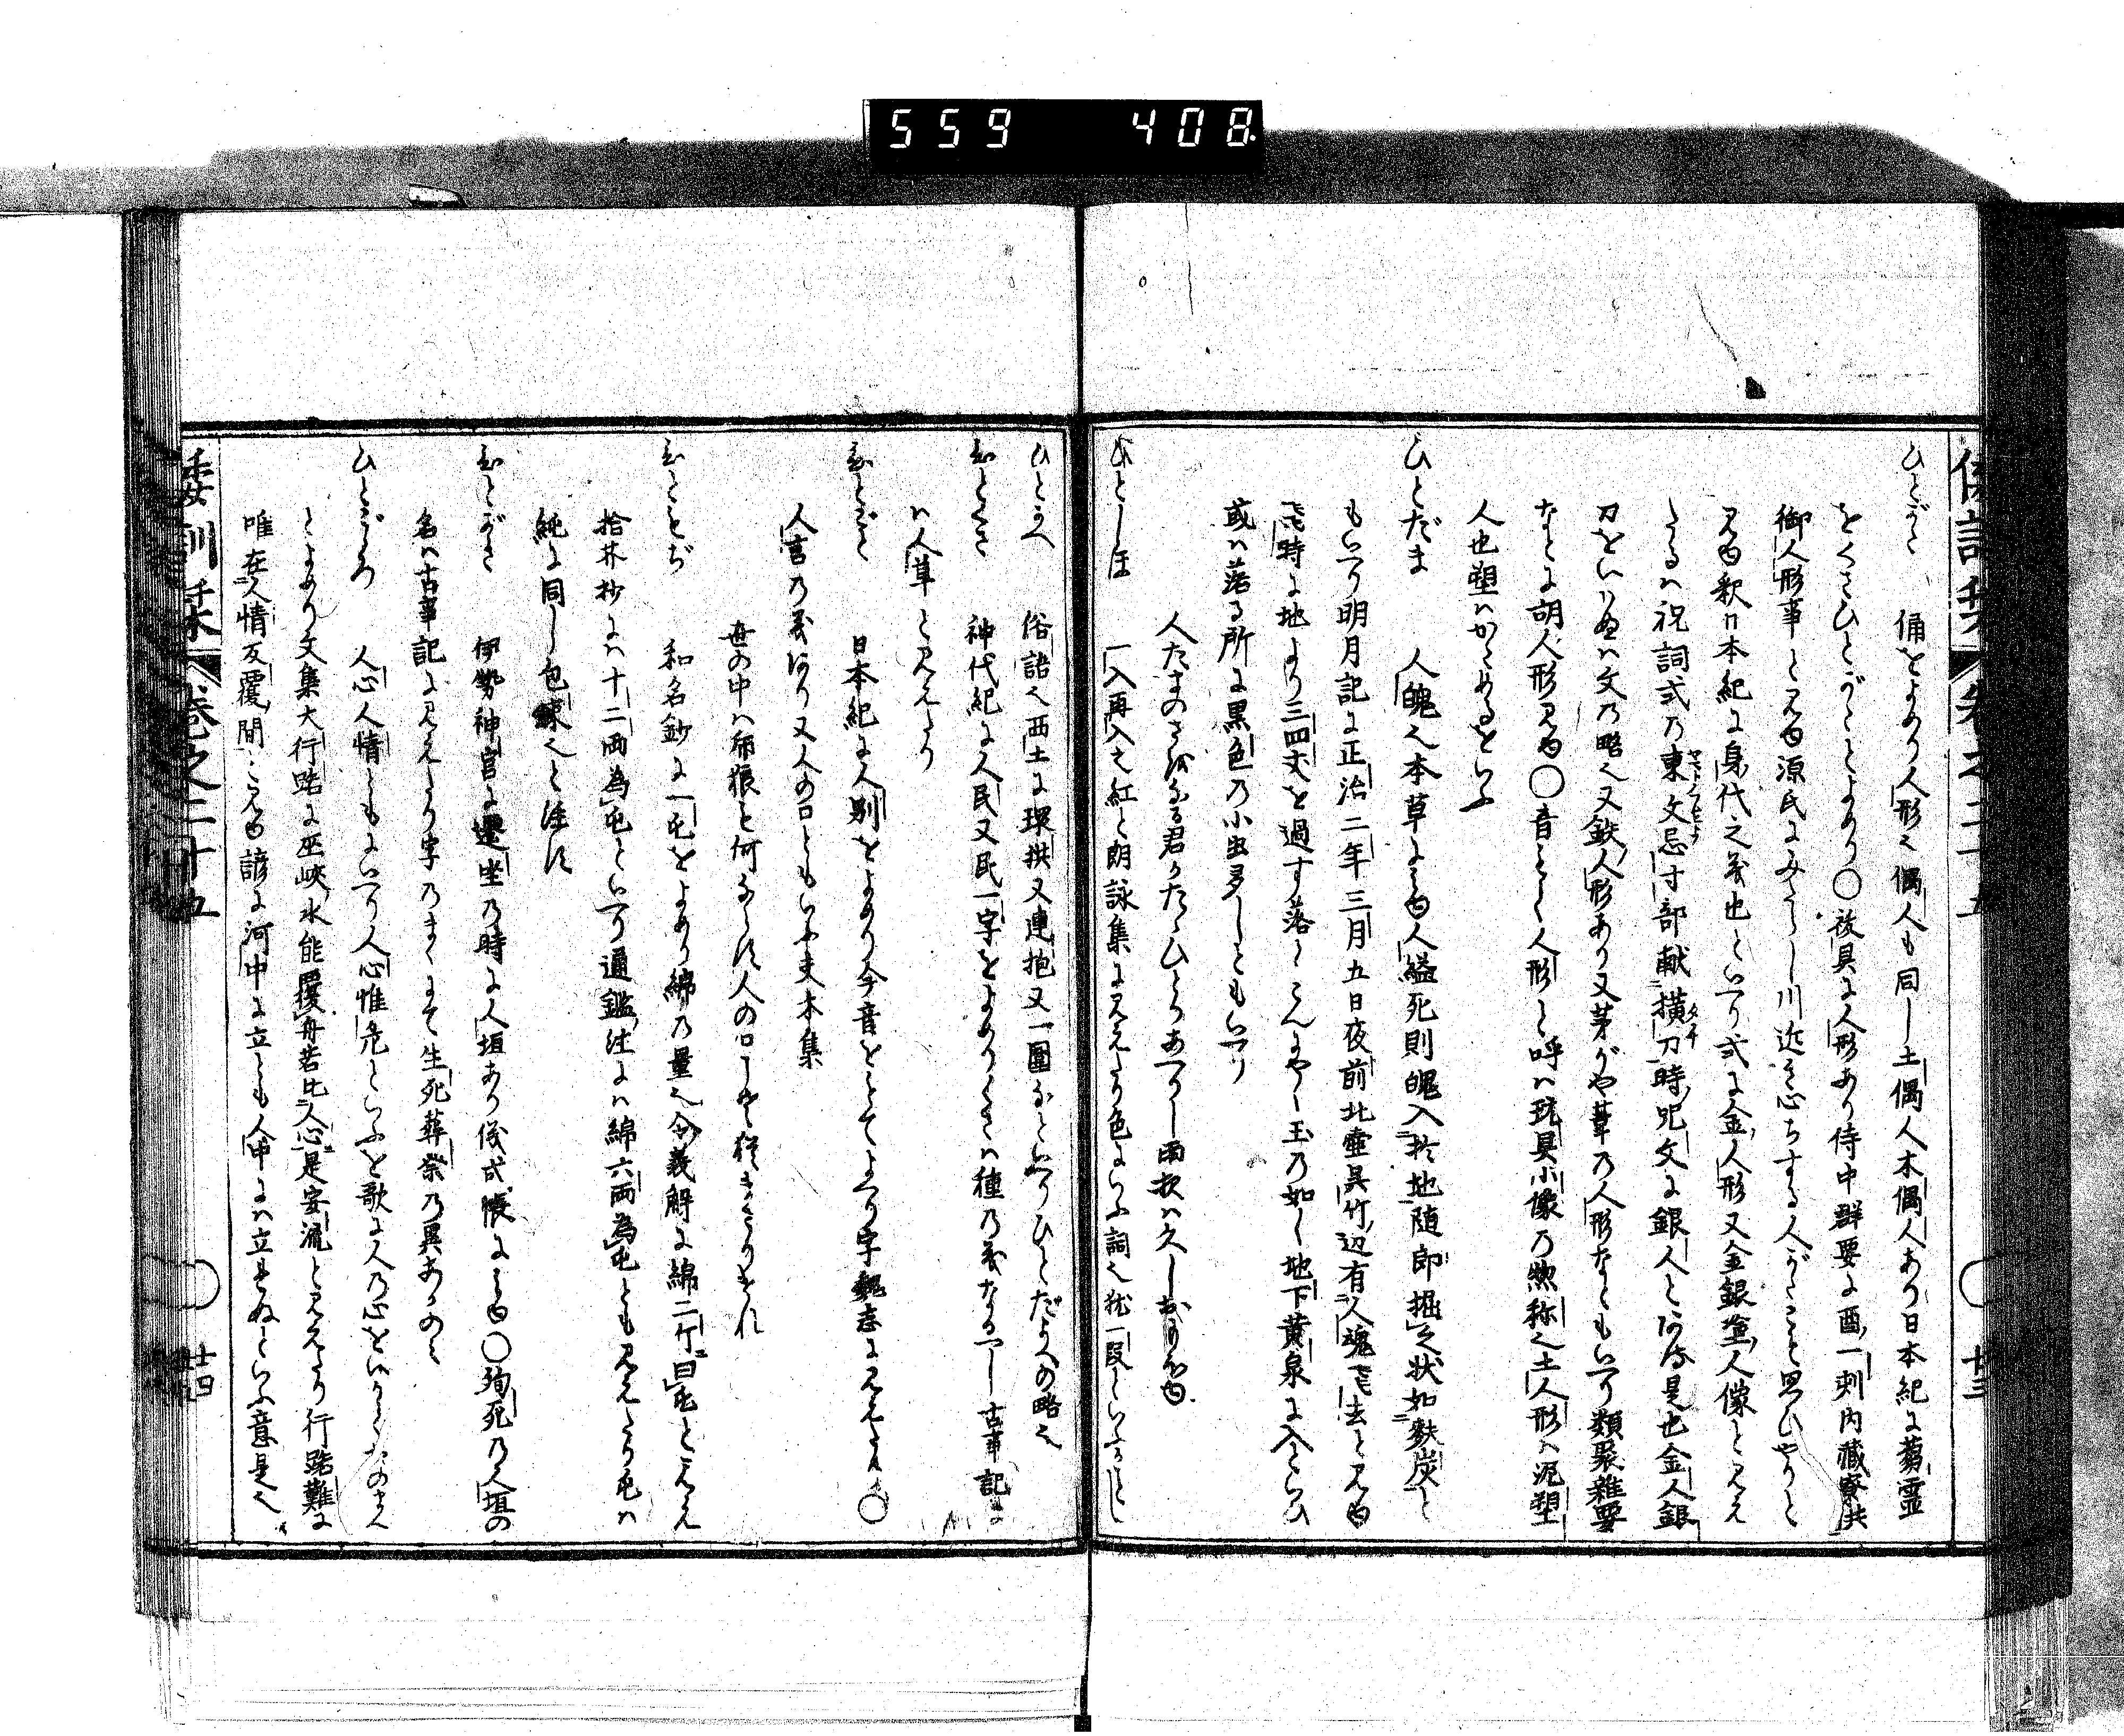 559 408
ひとがた 俑をよめり人形也偶人も同し土偶人木偶人あり日本紀に蒭霊
をくさひとがたとよめり○祓具に人形あり侍中群要に酉一刻内蔵寮供
御人形事と見ゆ源氏にみたらし川近き心ちする人がたこそ思ひやりと
見ゆ釈日本紀に身代之義也といへり式に金人形又金銀塗人像と見え
たるハ祝詞式乃東文忌寸部献横刀時呪文に銀人とある是也金人銀
刀をいハぬハ文乃略也又鉄人形あり又茅がや葦乃人形なともいへり類聚雑要
なとに胡人形見ゆ○音とく人形と呼ハ玩具小像乃惣称也土人形ハ泥塑
人也塑ハかためるをいふ
ひとだま 人魄也本草に見ゆ人縊死則魄入於地随即掘之状如麩炭と
もいへり明月記に正治二年三月五日夜前北壷呉竹辺有人魂飛去と見ゆ
飛時に地より三四丈を過す落くこんにやく玉乃如し地下黄泉に入といひ
或ハ落る所に黒色乃小虫多しともいへり
人たまのさ君かたひとりあへりし雨夜ハ久しおもほゆ
ひとしほ 一入再入之紅と朗詠集に見えたり色にいふ詞也猶一段といふかことし
ひとかへ 俗語也西土に環拱又連抱又一圍なといへりひとだかへの略也
ひとくさ 神代紀に人民又民一字をよめりくさハ種乃義なるへし古事記に
ハ人草と見えたり
ひとごと 日本紀に人別をよめり今音をとてよへり字魏志に見えたり○
人言乃義あり又人の口ともいふ夫木集
世の中ハ何なす人の口
ひともぢ 和名鈔に一屯をよめり綿乃量也令義解に綿二斤曰屯とこえ
拾芥抄にハ十二両為屯といへり通鑑注にハ綿六両為屯とも見えたり屯ハ
純に同し包練也と注す
ひとがき 伊勢神宮に遷坐乃時に人垣あり儀式帳に見ゆ○殉死乃人垣の
名ハ古事記に見えたり字乃まくにて生死葬祭乃異あるのミ
ひとごゝろ 人心人情ともにいへり人心惟危といふを歌に人乃心をいかゝたのまん
とよめり文集大行路に巫峡水能覆舟若比人心是安流と見えたり行路難に
唯在人情反覆間と見ゆ諺に河中に立とも人中にハ立れぬといふ意是也
倭訓栞 巻之二十五 廿三
倭訓栞 巻之二十五 廿四